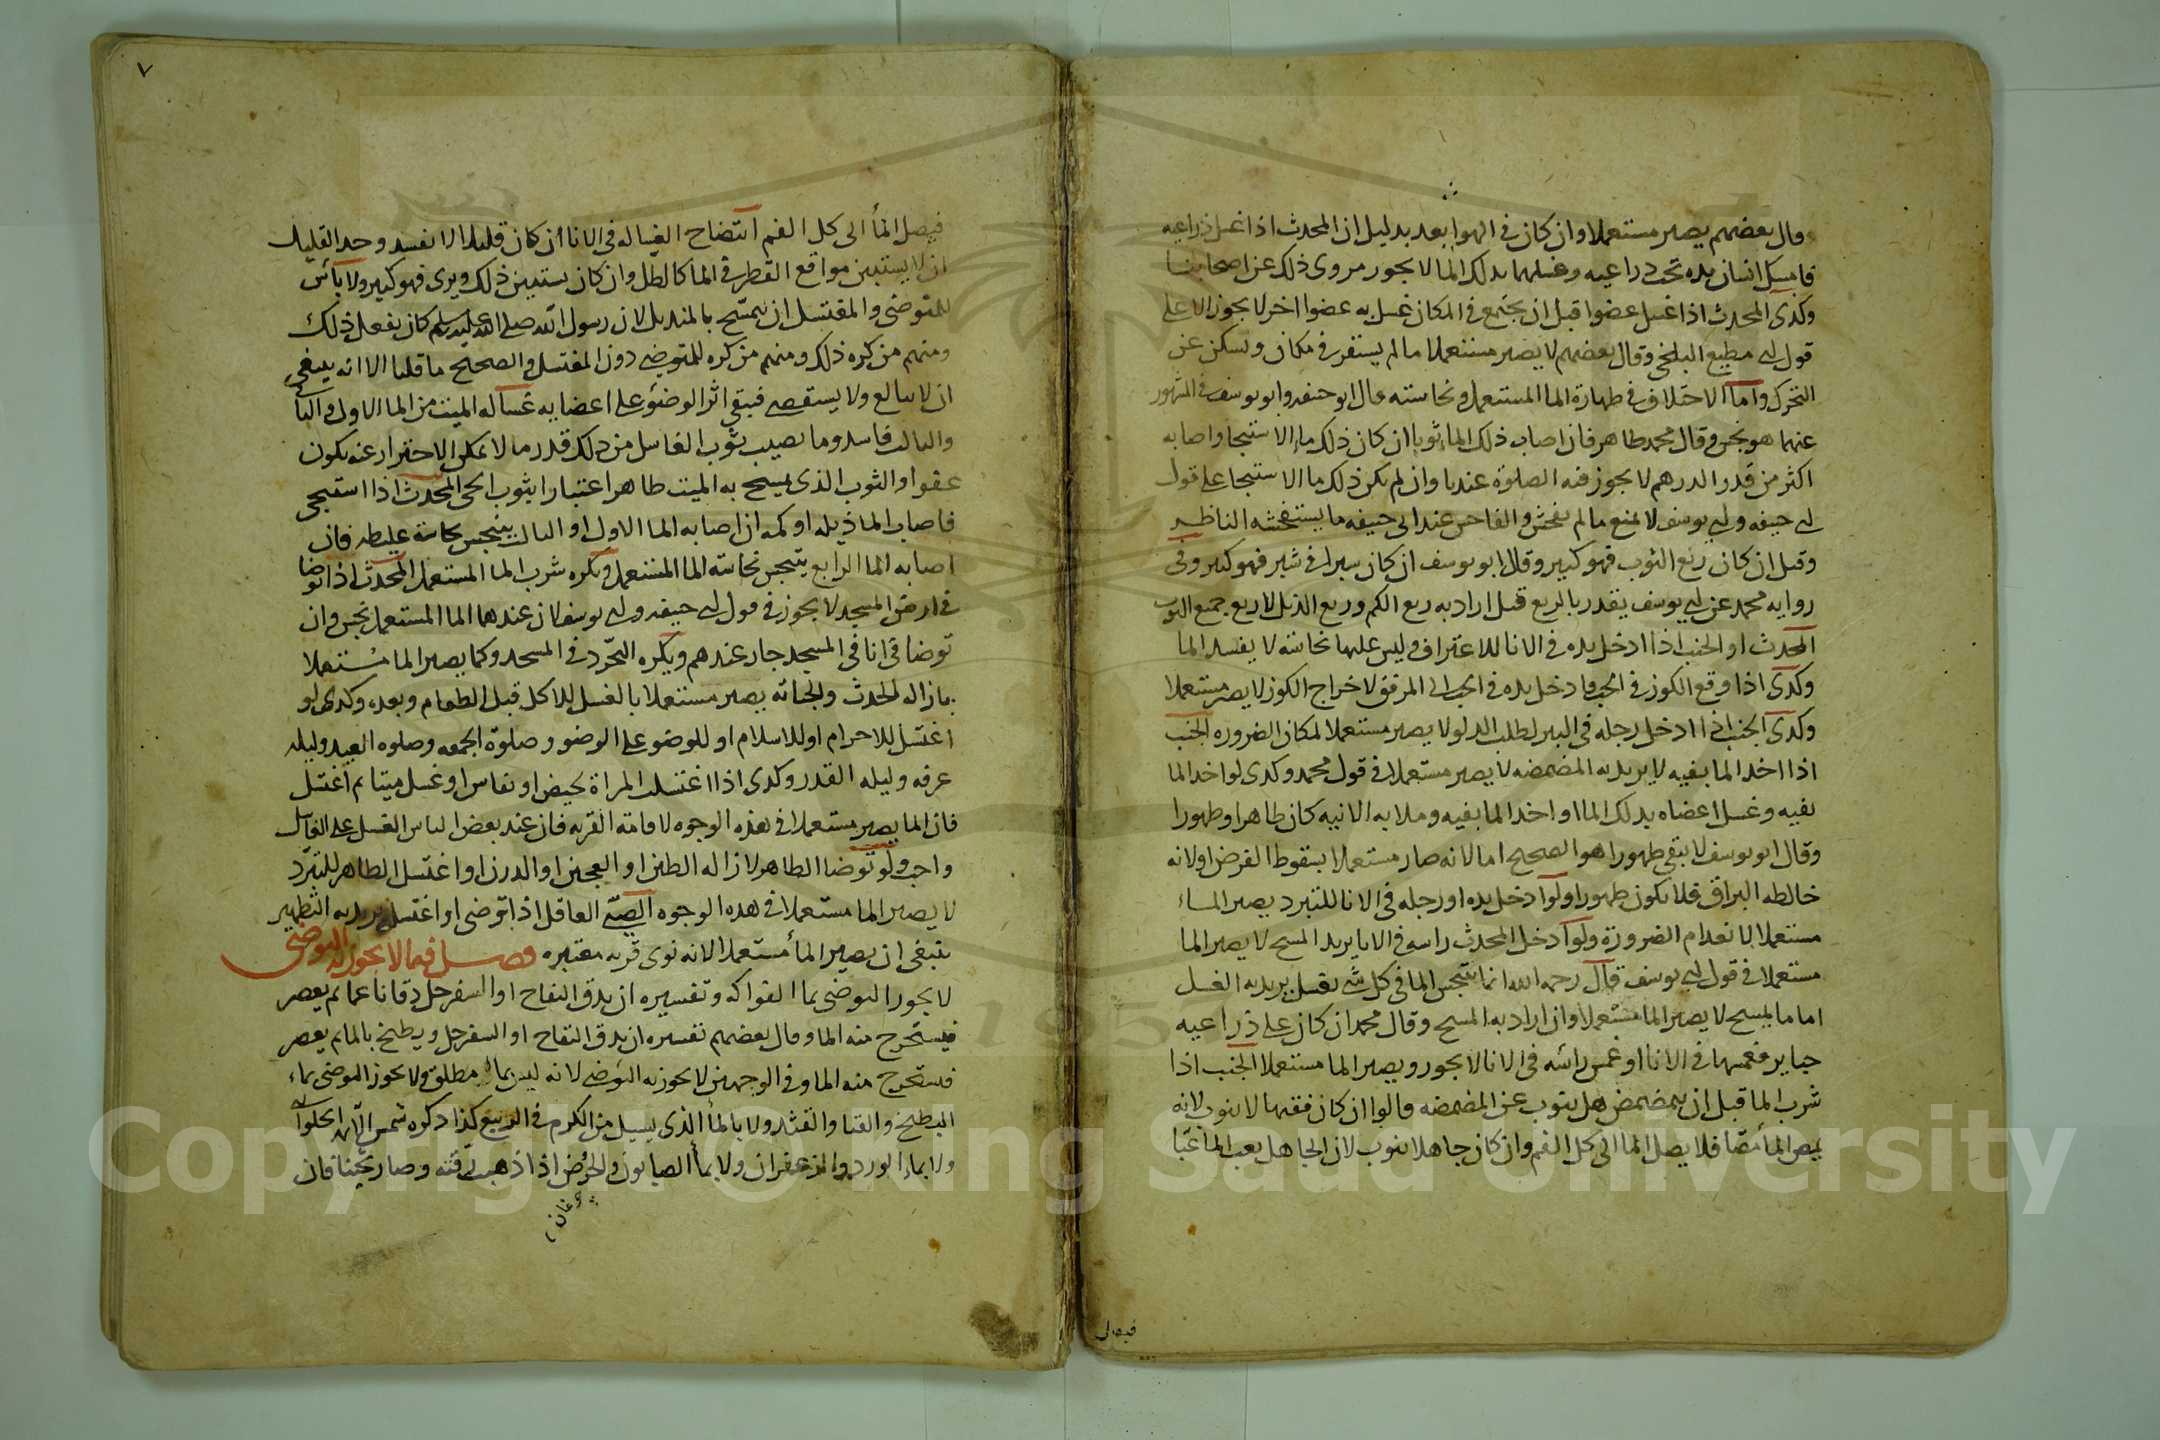 وقال بعضهم يصير مستعملا وان كان في الهوا بعد بدليل ان المحدث اذا غسل ذراعيه
فامسك انسان يده تحت ذراعيه وغسلهما بذلك الما لا يجوز مروى ذلك عن اصحابنا
وكذى المحدث اذا غسل عضوا قبل ان يجتمع في المكان غسل به عضوا اخر لا يجوز الا على
قول ابى مطيع البلخى وقال بعضهم لا يصير مستعملا ما لم يستقر في مكان ويسكن عن
التحرك واما الاختلاف في طهارة الما المستعمل ونجاسته قال ابو حنيفه وابو يوسف في المشهور
عنهما هو نجس وقال محمد طاهر فان اصاب ذلك الماء ثوبا ان كان ذلك ماء الاستنجا واصابه
اكثر من قدر الدرهم لا يجوز فيه الصلوة عندنا وان لم يكن ذلك ما الاستنجا على قول
ابى حنيفه وابى يوسف لا يمنع ما لم يفحش والفاحش عند ابى حنيفه ما يستفحشه الناظر
وقيل ان كان ربع الثوب فهو كبير وقال ابو يوسف ان كان شبرا في شبر فهو كبير وفى
روايه محمد عن ابى يوسف يقدر بالربع قيل اراد به ربع الكم وربع الذيل لا ربع جميع الثوب
المحدث او الجنب اذا ادخل يده في الانا للاغتراف وليس عليها نجاسة لا يفسد الما
وكذى اذا وقع الكوز في الجب فادخل يده في الجب الى المرفق لاخراج الكوز لا يصير مستعملا
وكذى الجنب اذا ادخل رجله في البير لطلب الدلو لا يصير مستعملا لمكان الضروره الجنب
اذا اخذ الما بفيه لا يريد به المضمضه لا يصير مستعملا في قول محمد وكذى لو اخذ الما
بفيه وغسل اعضاه بذلك الما او اخذ الما بفيه وملا به الانيه كان طاهرا وطهورا
وقال ابو يوسف لا يبقى طهورا هو الصحيح اما لانه صار مستعملا بسقوط الفرض او لانه
خالطه البزاق فلا يكون طهورا ولو ادخل يده او رجله في الانا للتبرد يصير الماء
مستعملا لانعدام الضرورة ولو ادخل المحدث راسه في الانا يريد المسح لا يصير الما
مستعملا في قول ابى يوسف قال رحمه الله انما يتنجس الما في كل شى يغسل يريد به الغسل
اما ما يمسح لا يصير الما مستعملا وان اراد به المسح وقال محمد ان كان على ذراعيه
جباير فغمسها في الانا او غمس راسه في الانا لا يجوز ويصير الما مستعملا الجنب اذا
شرب الما قبل ان يتمضمض هل ينوب عن المضمضه قالوا ان كان فقيها لا ينوب لانه
يمص الما مصا فلا يصل الما الى كل الفم وان كان جاهلا ينوب لان الجاهل يعب الما عبا
فيصل
٧
فيصل الما الى كل الفم انتضاح الغساله في الانا ان كان قليلا لا يفسد وحد القليل
ان لا يستبين مواقع القطر في الما كالطل وان كان يستبين ذلك ويرى فهو كبير ولا باس
للمتوضى والمغتسل ان يتمسح بالمنديل لان رسول الله صلى الله عليه وسلم كان يفعل ذلك
ومنهم من كره ذلك ومنهم من كره للمتوضى دون المغتسل والصحيح ما قلنا الا انه ينبغى
ان لا يبالغ ولا يستقصى فيبقى اثر الوضوء على اعضايه غساله الميت من الما الاول والثانى
والثالث فاسد وما يصيب ثوب الغاسل من ذلك قدر ما لا يمكن الاحتراز عنه يكون
عفوا والثوب الذى يمسح به الميت طاهر اعتبارا بثوب الحى المحدث اذا استنجى
فاصاب الما ذيله او كمه ان اصابه الما الاول او الثالث يتنجس نجاسة غليظه فان
اصابه الما الرابع يتنجس نجاسة الما المستعمل ويكره شرب الما المستعمل المحدث اذا توضا
في ارض المسجد لا يجوز في قول ابى حنيفه وابى يوسف لان عندهما الما المستعمل نجس وان
توضا في انا في المسجد جاز عندهم ويكره التجرد في المسجد وكما يصير الما مستعملا
بازاله الحدث والجنابه يصير مستعملا بالغسل للاكل قبل الطعام وبعده وكذى لو
اغتسل للاحرام او للاسلام او للوضو على الوضو وصلوة الجمعه وصلوه العيد وليله
عرفه وليله القدر وكذى اذا اغتسلت المراة لحيض او نفاس او غسل ميتا ثم اغتسل
فان الما يصير مستعملا في هذه الوجوه لاقامة القربه فان عند بعض الناس الغسل على الغاسل
واجب ولو توضا الطاهر لازاله الطين او العجين او الدرن او اغتسل الطاهر للتبرد
لا يصير الما مستعملا في هذه الوجوه الصبى العاقل اذا توضى او اغتسل يريد به التطهير
ينبغى ان يصير الما مستعملا لانه نوى قربه معتبره فصل فيما لا يجوز به التوضى
لا يجوز التوضى بما الفواكه وتفسيره ان يدق التفاح او السفرجل دقا ناعما ثم يعصر
فيستخرج منه الما وقال بعضهم تفسيره ان يدق التفاح او السفرجل ويطبخ بالما ثم يعصر
فيستخرج منه الما وفى الوجهين لا يجوز به التوضى لانه ليس بما مطلق ولا يجوز التوضى بماء
البطيخ والقثا والقثد ولا بالما الذى يسيل من الكرم في الربيع كذا ذكره شمس الائمه الحلوانى
ولا بماء الورد والزعفران ولا بما الصابون والحرض اذا ذهبت رقته وصار ثخينا فان